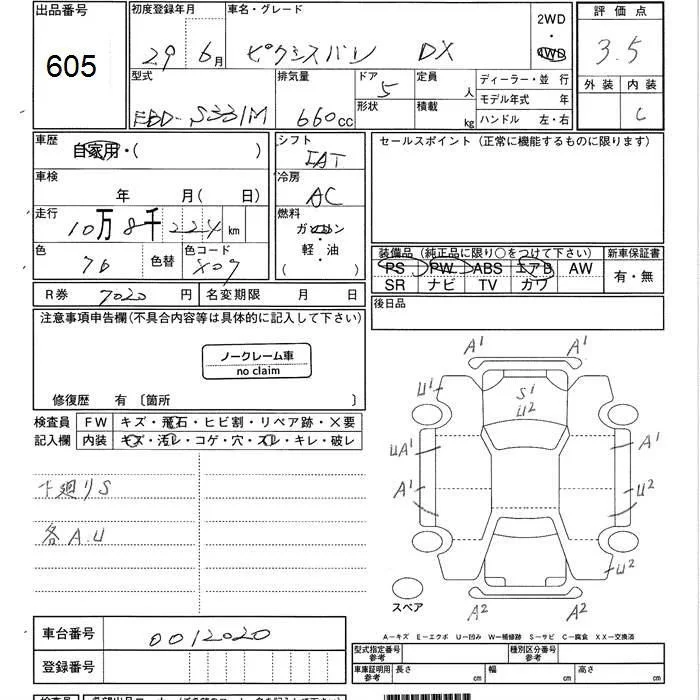 出品番号
605
初度登録年月
29 6月
車名・グレード
ピクシスバン DX
2WD
・
4WD
評価点
3.5
外装 内装
C
型式
EBD-S331M
排気量
660cc
ドア
5
形状
定員
人
積載
kg
ディーラー・並行
モデル年式 年
ハンドル 左・右
車歴
自家用・( )
シフト
IAT
セールスポイント (正常に機能するものに限ります)
車検
年 月( 日)
冷房
AC
走行
10万8千224km
燃料
ガソリン
・
軽・油
( )
色
色替
色コード
装備品 (純正品に限り○をつけて下さい)
新車保証書
PS PW ABS エアB AW
SR ナビ TV カワ
有・無
R券 7020円
名変期限 月 日
後日品
注意事項申告欄(不具合内容等は具体的に記入して下さい)
ノークレーム車
no claim
修復歴 有 〔箇所 〕
検査員
記入欄
FW キズ・飛石・ヒビ割・リペア跡・×要
内装 キズ・汚レ・コゲ・穴・スレ・キレ・破レ
下廻りS
各A.U
A1 A1
U1
S1
U2
UA1
A1
A1
U2
U2
A2 A2
スペア
A-キズ E-エクボ U-凹み W-補修跡 S-サビ C-腐食 XX-交換済
車台番号
0012020
登録番号
型式指定番号
参考
種別区分番号
参考
車庫証明用
参考
長さ cm
幅 cm
高さ cm